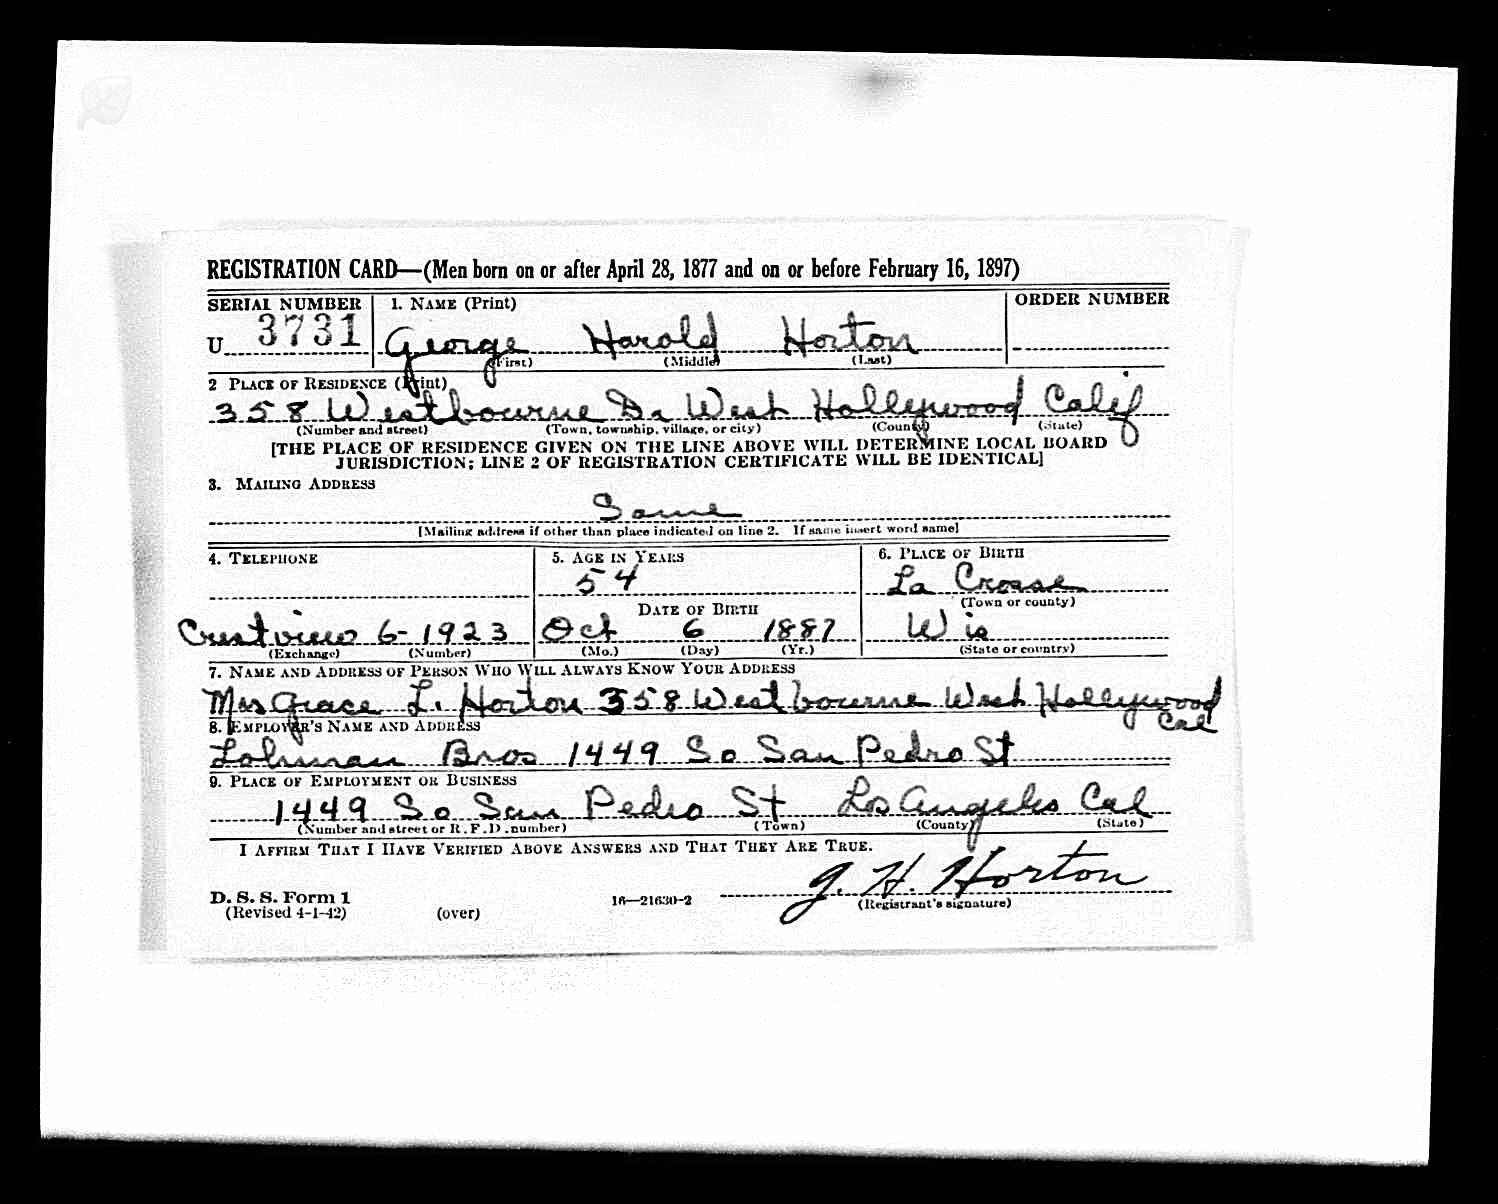 REGISTRATION CARD—(Men born on or after April 28, 1877 and on or before February 16, 1897)
SERIAL NUMBER 1. NAME (Print) ORDER NUMBER
U 3731 George Harold Horton
(First) (Middle) (Last)
2 PLACE OF RESIDENCE (Print)
358 Westbourne Dr West Hollywood Calif
(Number and street) (Town, township, village, or city) (County) (State)
[THE PLACE OF RESIDENCE GIVEN ON THE LINE ABOVE WILL DETERMINE LOCAL BOARD
JURISDICTION; LINE 2 OF REGISTRATION CERTIFICATE WILL BE IDENTICAL]
3. MAILING ADDRESS
Same
[Mailing address if other than place indicated on line 2. If same insert word same]
4. TELEPHONE 5. AGE IN YEARS 6. PLACE OF BIRTH
54 La Crosse
DATE OF BIRTH (Town or county)
Crestview 6-1923 Oct 6 1887 Wis
(Exchange) (Number) (Mo.) (Day) (Yr.) (State or country)
7. NAME AND ADDRESS OF PERSON WHO WILL ALWAYS KNOW YOUR ADDRESS
Mrs Grace L. Horton 358 Westbourne West Hollywood
Cal
8. EMPLOYER'S NAME AND ADDRESS
Lohman Bros 1449 So San Pedro St
9. PLACE OF EMPLOYMENT OR BUSINESS
1449 So San Pedro St Los Angeles Cal
(Number and street or R. F. D. number) (Town) (County) (State)
I AFFIRM THAT I HAVE VERIFIED ABOVE ANSWERS AND THAT THEY ARE TRUE.
G. H. Horton
D. S. S. Form 1 16—21630-2 (Registrant's signature)
(Revised 4-1-42) (over)